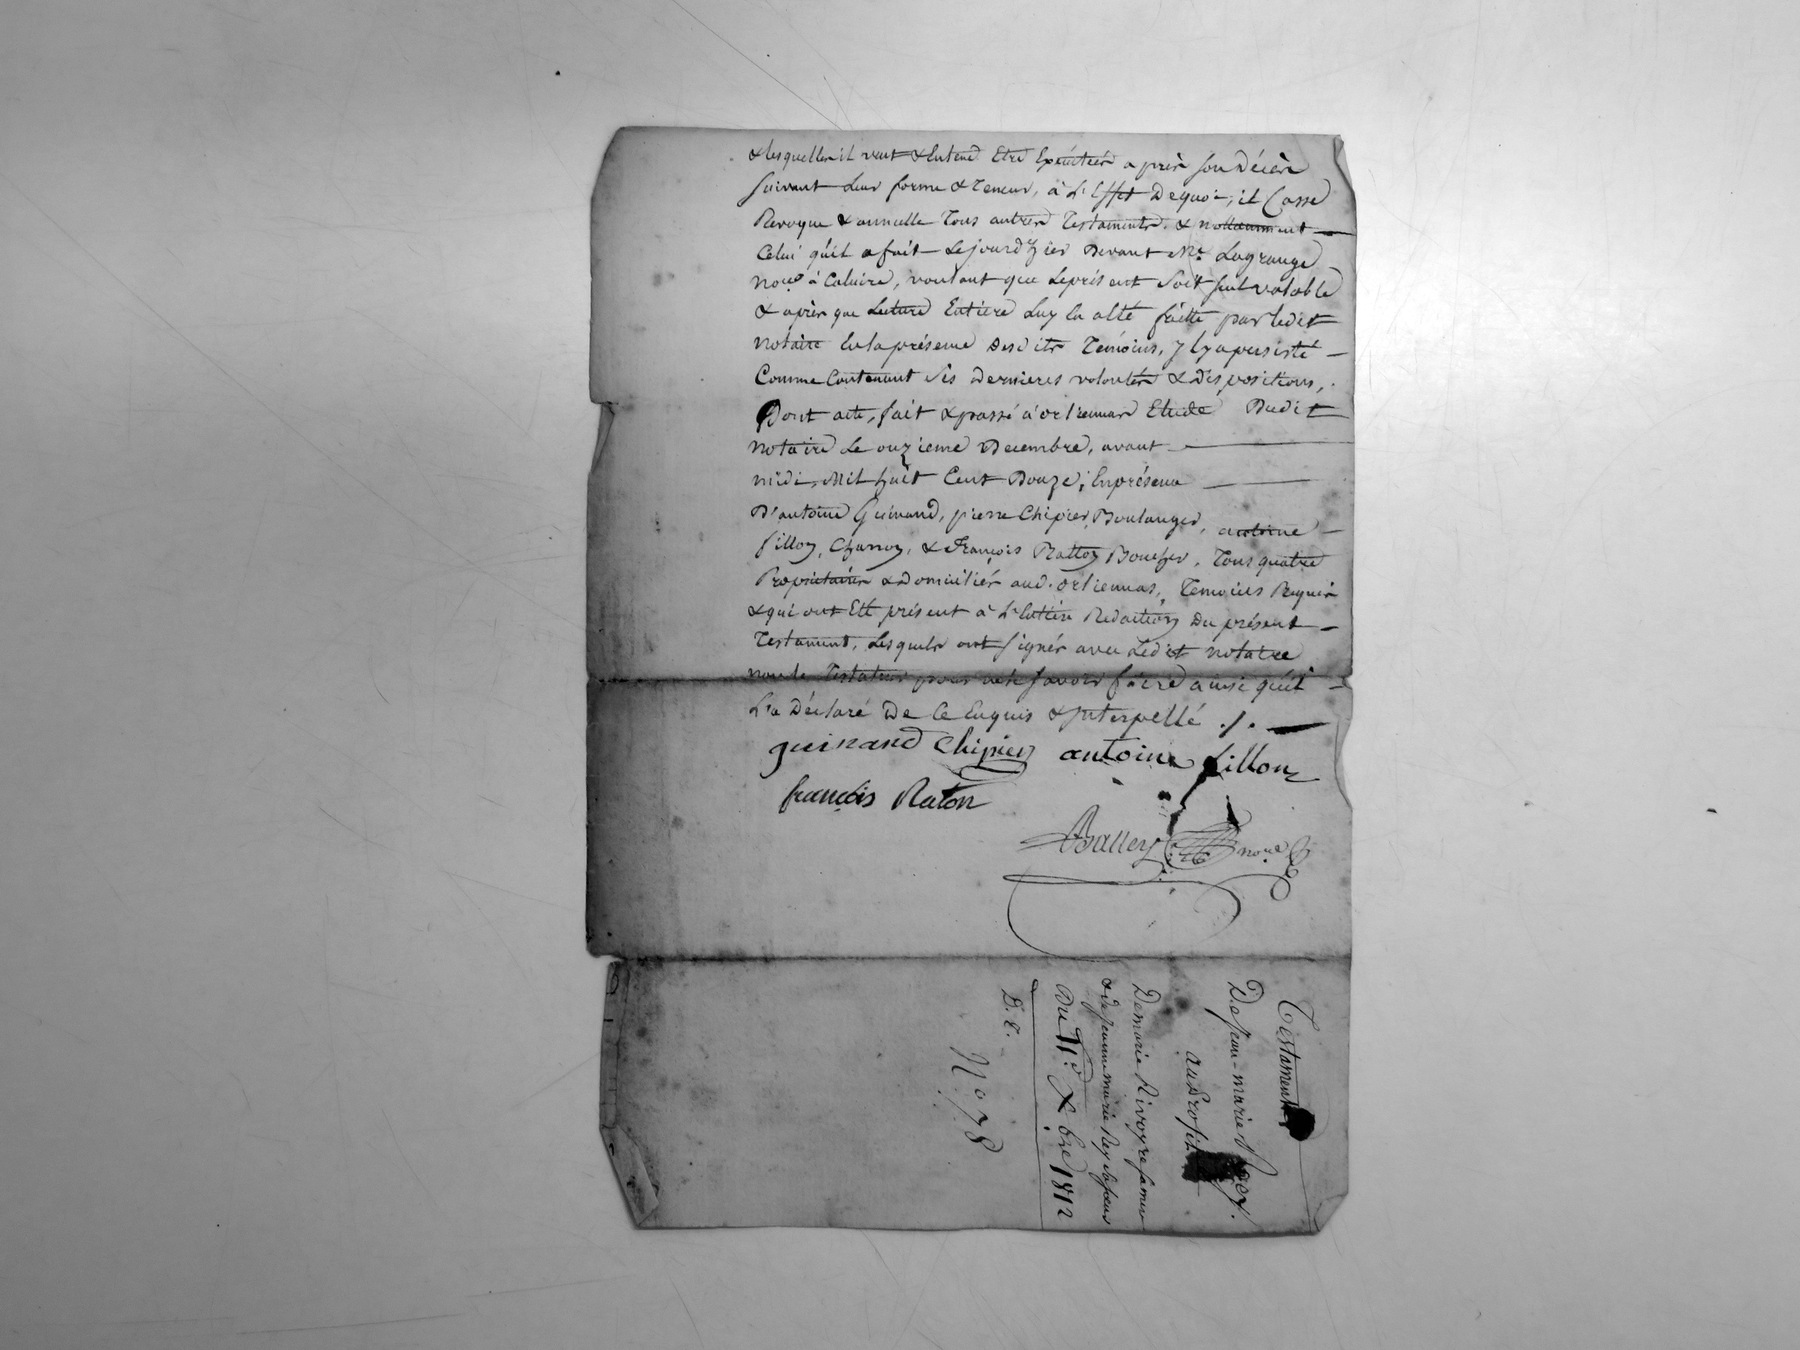 & lesquelles il veut & Entend Etre Exécuteés après son Décès
suivant leur forme & Teneur, à L'Effet Dequoi, il Casse
Revoque & annulle Tous autres Testaments & nottamment
Celui qu'il a fait le jour d'hier Devant Me. Lagrange
nore à Caluire, voulant que le présent soit seul valable
& après que Lecture Entiere Luy En a été faitte par ledit
notaire En la présence Desdits Témoins, y Ly a persisté
Comme Contenant sès dernieres volontés & dispositions,
Dont acte, fait & passé à ortiennas Etude Dudit
notaire Le onzieme Decembre, avant
midi, Mil huit Cent Douze, En présence
D'antoine Guinand, pierre Chipier Boulanger, antoine
fillon, Charron, & François Ratton Boucher, Tous quatre
Propriétaires & Domiciliés aud. ortiennas, Temoins Requis
& qui ont Eté présent à L'Entière Redaction Du présent
Testament, Lesquels ont signés avec Ledit notaire
non le Testateur pour ne le savoir faire ainsi qu'il
L'a Déclaré De Ce Enquis & Interpellé ./.
guinand Chipier antoine fillon
françois Raton
Balley nore
Testament
De Jean-marie Rey.
au Profit
De marie Rivoyre sa mere
& de jeanne marie Rey sa soeur
Du 11e Xbre 1812
D. E.
No 78